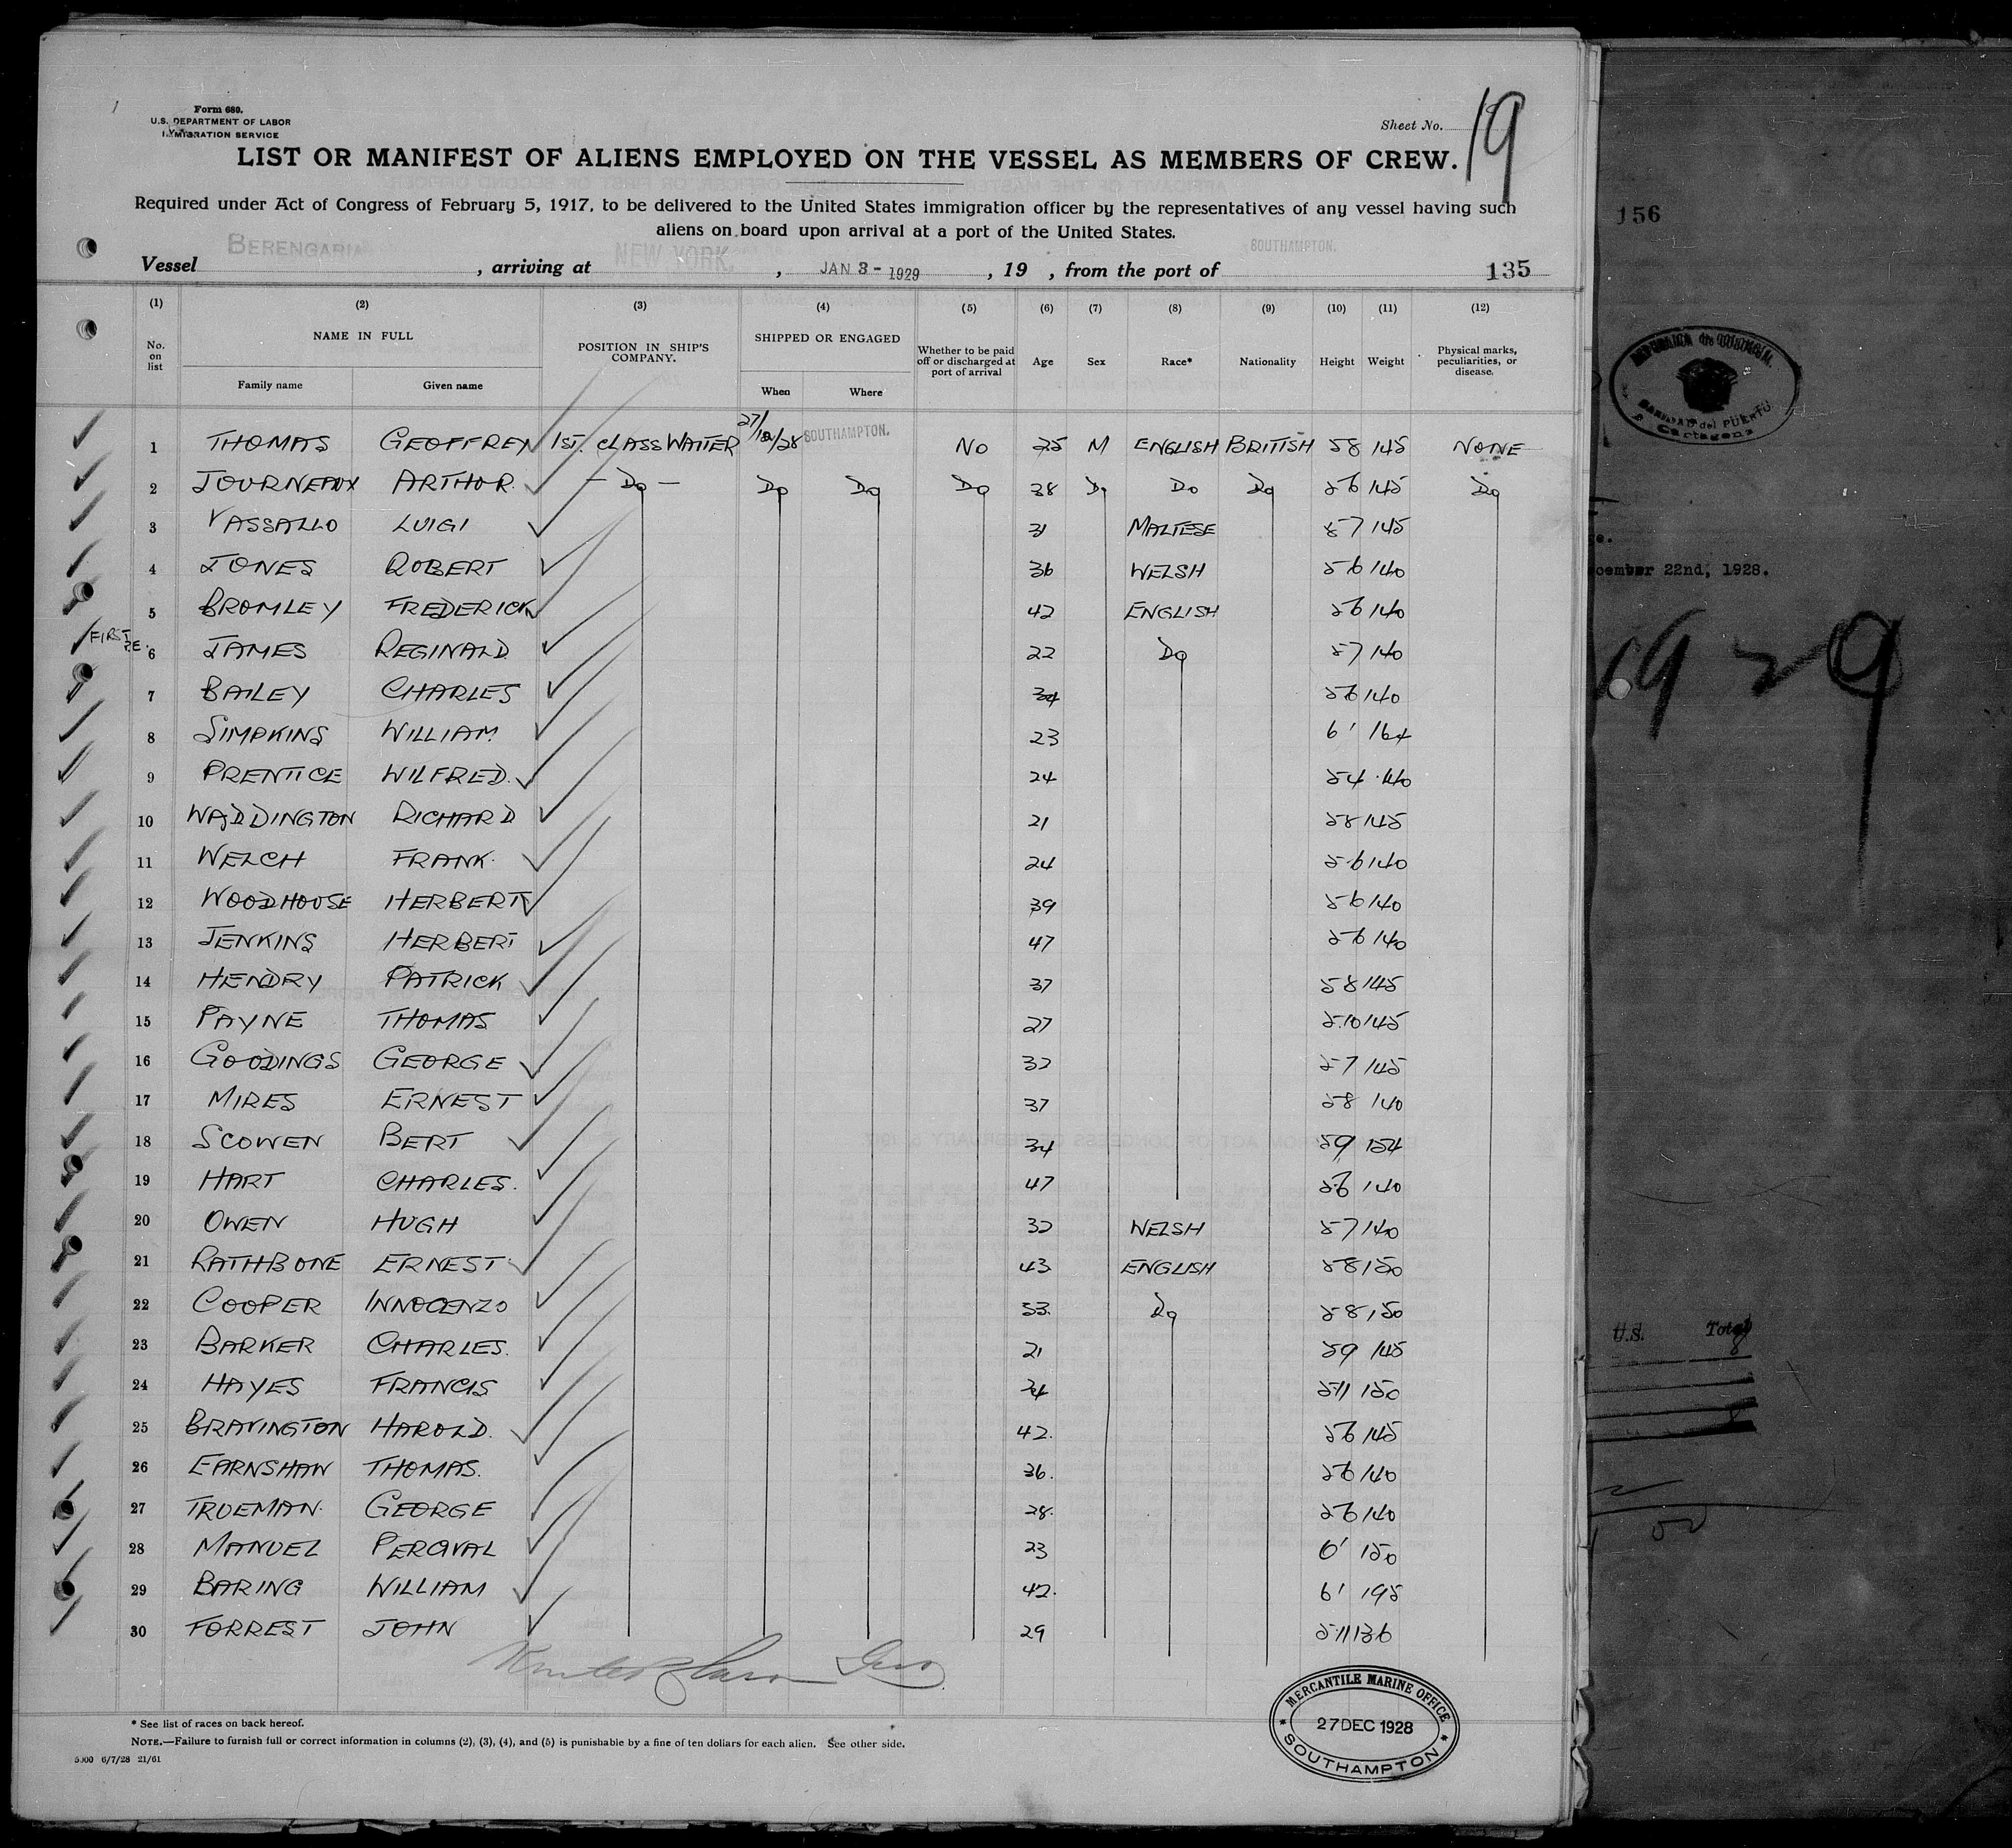 Form 689.
U.S. DEPARTMENT OF LABOR
IMMIGRATION SERVICE
Sheet No. 19
LIST OR MANIFEST OF ALIENS EMPLOYED ON THE VESSEL AS MEMBERS OF CREW.
Required under Act of Congress of February 5, 1917, to be delivered to the United States immigration officer by the representatives of any vessel having such
aliens on board upon arrival at a port of the United States.
Vessel BERENGARIA, arriving at NEW YORK, JAN 3 - 1929, 19 , from the port of SOUTHAMPTON. 135
(1) (2) (3) (4) (5) (6) (7) (8) (9) (10) (11) (12)
No. on list NAME IN FULL POSITION IN SHIP'S COMPANY. SHIPPED OR ENGAGED Whether to be paid off or discharged at port of arrival Age Sex Race* Nationality Height Weight Physical marks, peculiarities, or disease.
Family name Given name When Where
1 THOMAS GEOFFREY 1ST. CLASS WAITER 27/12/28 SOUTHAMPTON. NO 25 M ENGLISH BRITISH 58 145 NONE
2 JOURNEAUX ARTHUR. - Do - Do Do Do 38 Do Do Do 56 145 Do
3 VASSALLO LUIGI 31 MALTESE 57 145
4 JONES ROBERT 36 WELSH 56 140
5 BROMLEY FREDERICK 42 ENGLISH 56 140
FIRST P.E. 6 JAMES REGINALD. 22 Do 57 140
7 BAILEY CHARLES 34 56 140
8 SIMPKINS WILLIAM. 23 6' 164
9 PRENTICE WILFRED. 24 54 140
10 WADDINGTON RICHARD 21 58 145
11 WELCH FRANK. 24 56 140
12 WOODHOUSE HERBERT 39 56 140
13 JENKINS HERBERT 47 56 140
14 HENDRY PATRICK 37 58 145
15 PAYNE THOMAS 27 5.10 145
16 GOODINGS GEORGE 32 57 145
17 MIRES ERNEST 37 58 140
18 SCOWEN BERT 34 59 154
19 HART CHARLES. 47 56 140
20 OWEN HUGH 32 WELSH 57 140
21 RATHBONE ERNEST 43 ENGLISH 58 150
22 COOPER INNOCENZO 53. Do 58 150
23 BARKER CHARLES. 21 59 145
24 HAYES FRANCIS 34 511 150
25 BRAVINGTON HAROLD. 42. 56 145
26 EARNSHAW THOMAS. 36. 56 140
27 TRUEMAN. GEORGE 28. 56 140
28 MANUEL PERCIVAL 23 6' 150
29 BARING WILLIAM 42. 6' 195
30 FORREST JOHN 29 511 136
MERCANTILE MARINE OFFICE
27 DEC 1928
SOUTHAMPTON
* See list of races on back hereof.
NOTE.—Failure to furnish full or correct information in columns (2), (3), (4), and (5) is punishable by a fine of ten dollars for each alien. See other side.
5000 6/7/28 21/61
156
SANIDAD del PUERTO
Cartagena
22nd, 1928.
1929
U.S. Total